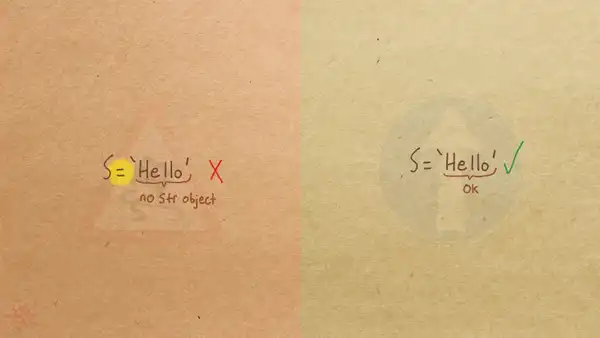 S = 'Hello' X
no str object
S = 'Hello' ✓
OK